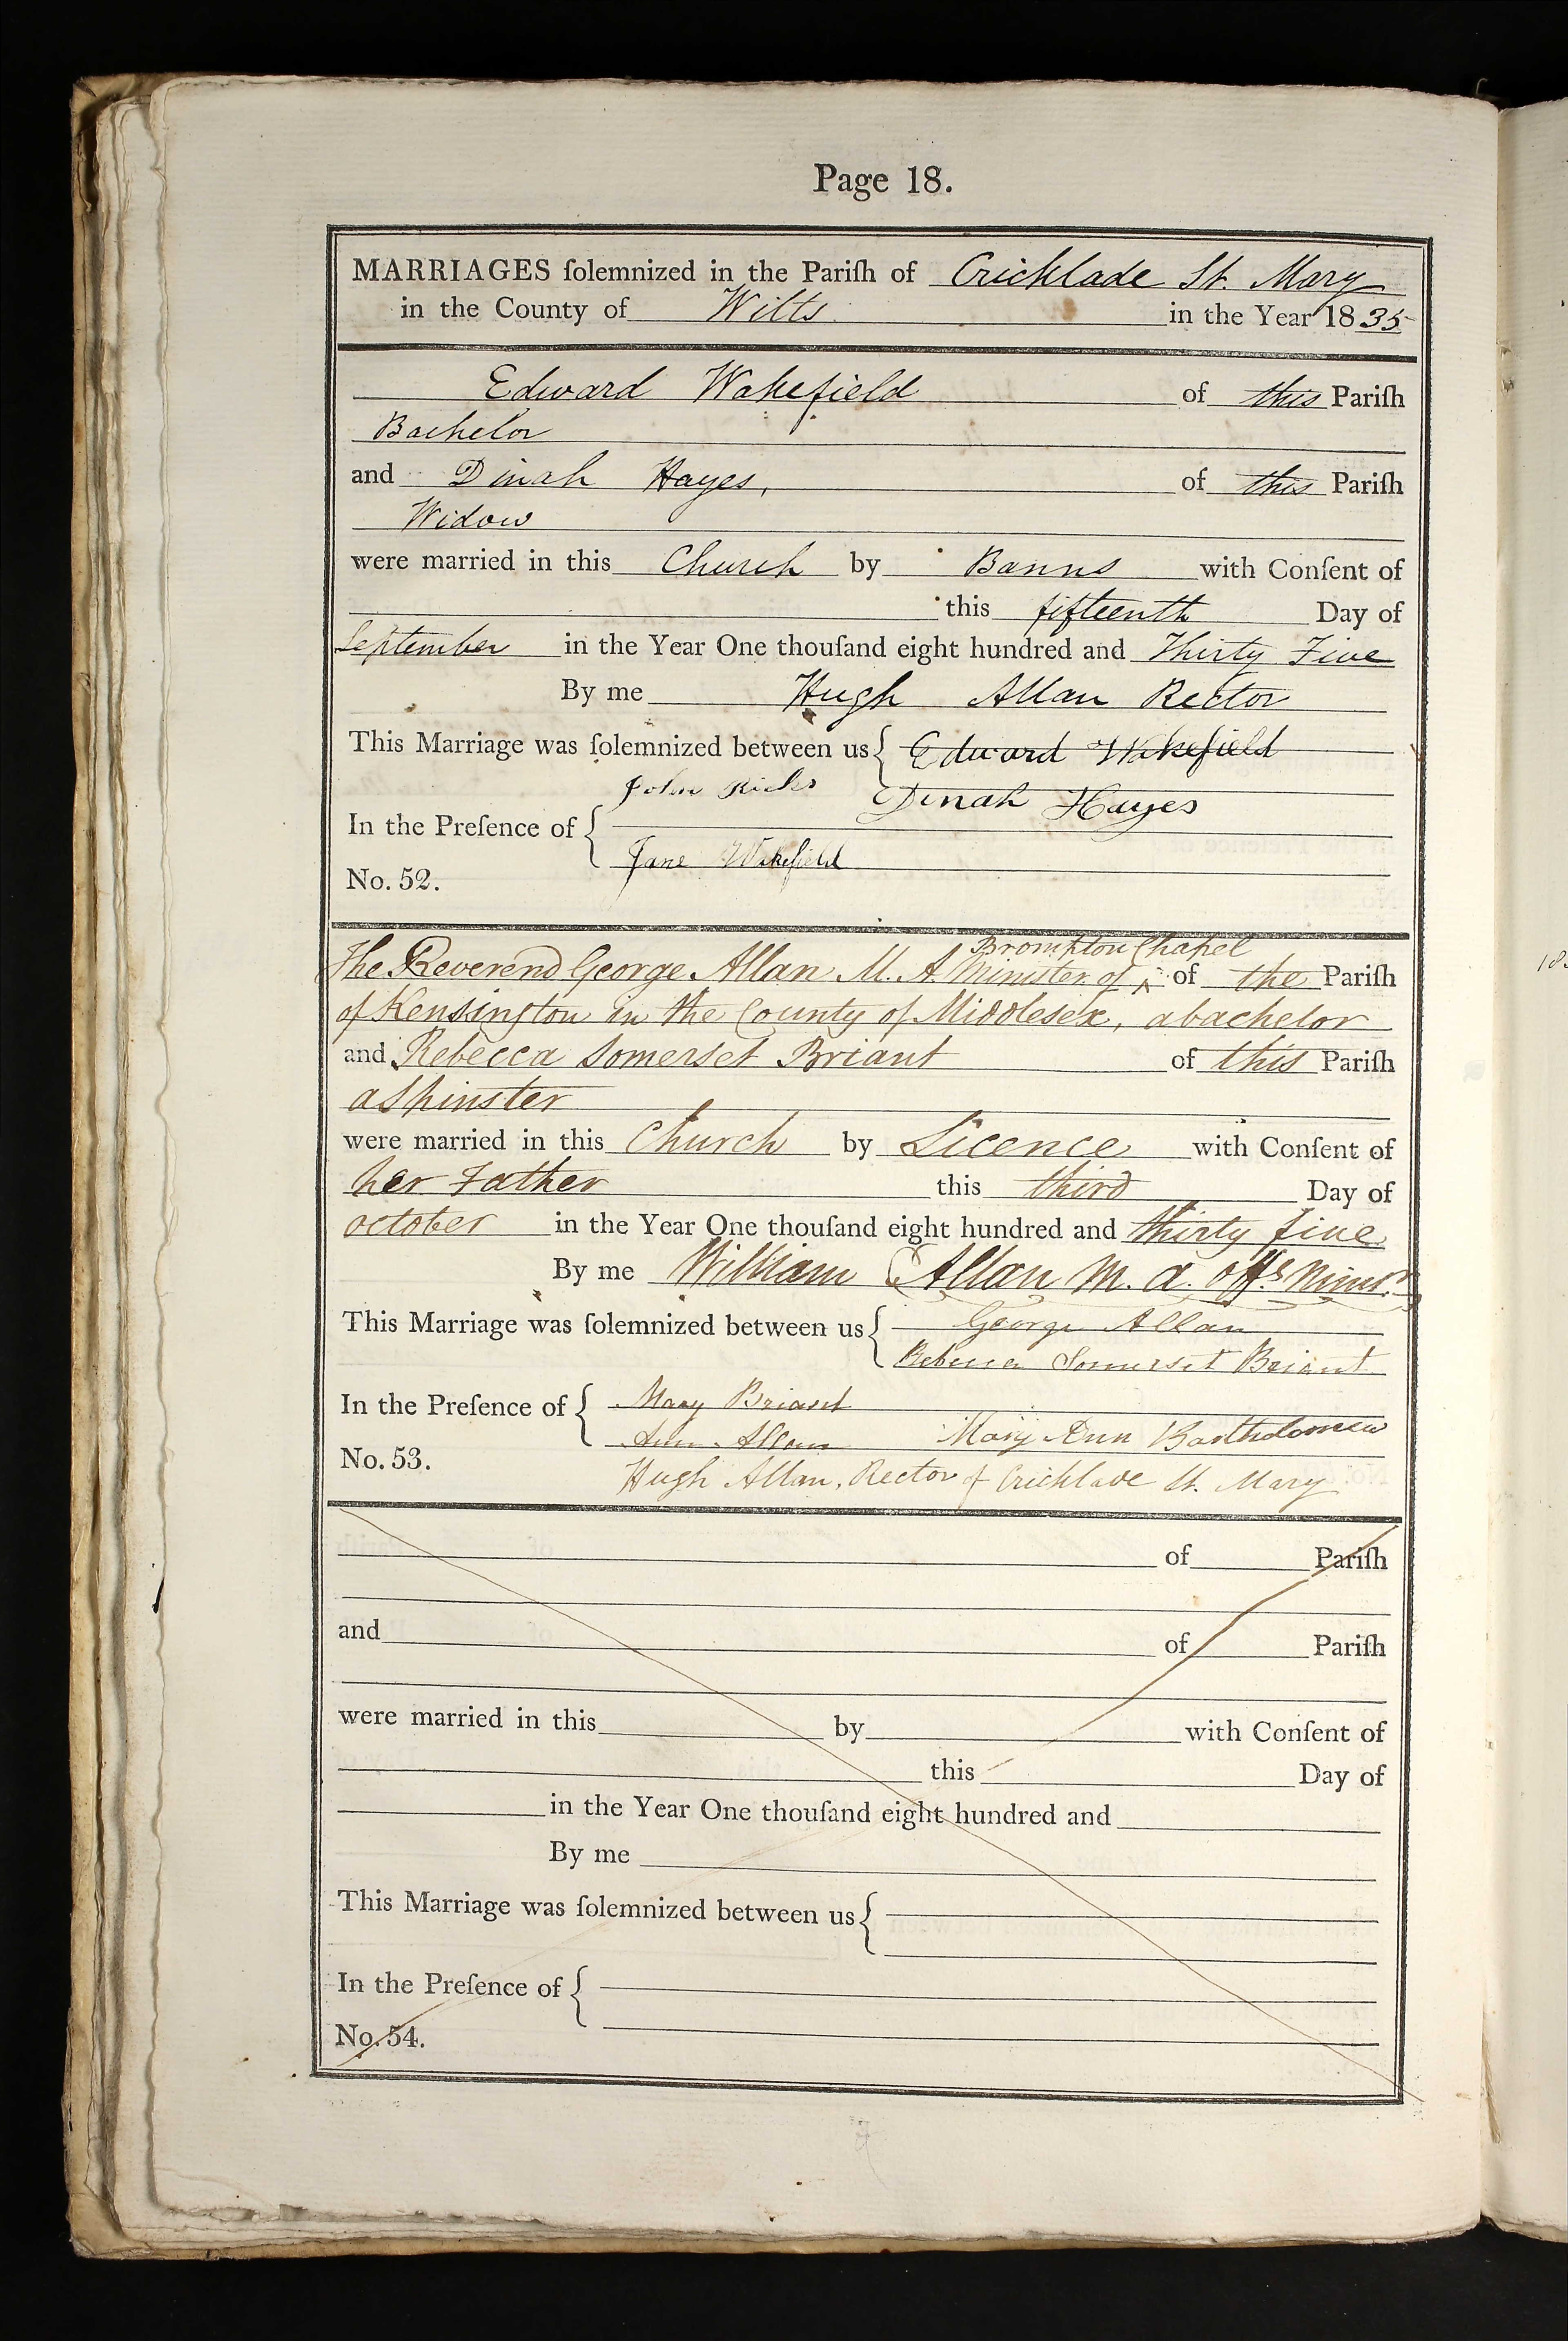 Page 18.
MARRIAGES ſolemnized in the Pariſh of Cricklade St. Mary
in the County of Wilts in the Year 1835
Edward Wakefield of this Pariſh
Bachelor
and Dinah Hayes, of this Pariſh
Widow
were married in this Church by Banns with Conſent of
this fifteenth Day of
September in the Year One thouſand eight hundred and Thirty Five
By me Hugh Allan Rector
This Marriage was ſolemnized between us { Edward Wakefield
Dinah Hayes
In the Preſence of { John Ricks
Jane Wakefield
No. 52.
Brompton Chapel
The Reverend George Allan M. A. Minister of ^ of the Pariſh
of Kensington in the County of Middlesex, a bachelor
and Rebecca Somerset Briant of this Pariſh
a Spinster
were married in this Church by Licence with Conſent of
her Father this third Day of
october in the Year One thouſand eight hundred and thirty five
By me William Allan M. A. offg. Minr.
This Marriage was ſolemnized between us { George Allan
Rebecca Somerset Briant
In the Preſence of { Mary Briant
Ann Allan Mary Ann Bartholomew
No. 53.
Hugh Allan, Rector of Cricklade St. Mary
of Pariſh
and of Pariſh
were married in this by with Conſent of
this Day of
in the Year One thouſand eight hundred and
By me
This Marriage was ſolemnized between us {
In the Preſence of {
No. 54.